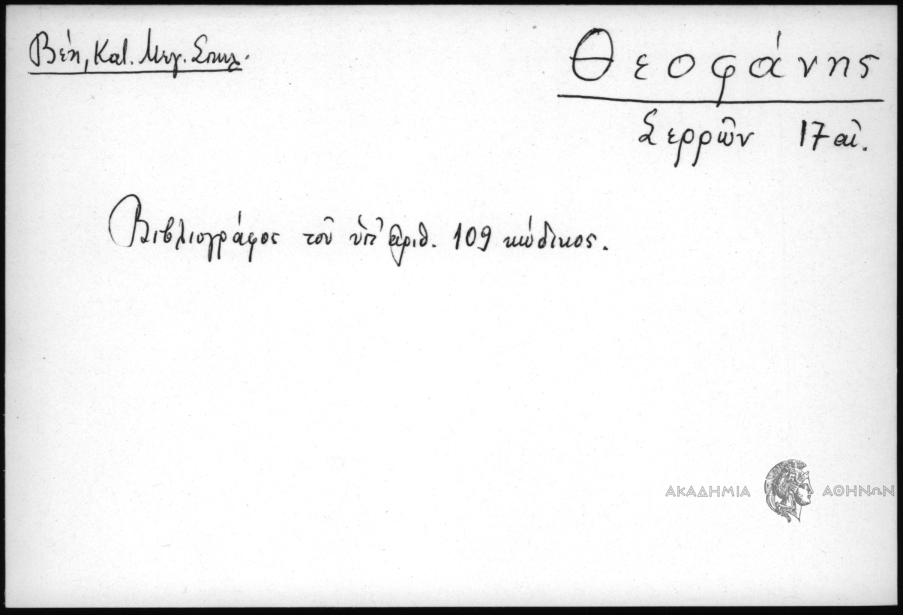 Βέη, Κατ. Μεγ. Σπηλ.
Θεοφάνης
Σερρῶν 17 αἰ.
Βιβλιογράφος τοῦ ὑπ' ἀριθ. 109 κώδικος.
ΑΚΑΔΗΜΙΑ ΑΘΗΝΩΝ